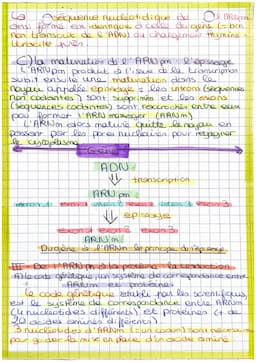 La séquence nucléotidique de l'ARNpm
ainsi formé est identique à celle du gène (= brin
non transcrit de l'ADN) au changement thymine
uracile près.
c) la maturation de l'ARNpm : l'épissage
L'ARNpm produit à l'issue de la transcription
subit ensuite une maturation dans le
noyau appelée épissage : les introns (séquences
non codantes) sont supprimés et les exons
(séquences codantes) sont raccordés entre eux
pour former l'ARN messager (ARNm)
L'ARNm alors mature quitte le noyau en
passant par les pores nucléaires pour rejoindre
le cytoplasme
ADN
transcription
ARN pm
épissage
ARN m
Du gène à l'ARNm le principe de l'épissage
III - De l'ARNm à la protéine : la traduction
A/ Le code génétique : un système de correspondance entre
ARNm et protéines
Le code génétique établi par les scientifiques,
est le système de correspondance entre ARNm
(4 nucléotides différents) et protéines (+ de
20 acides aminés différents)
3 nucléotides d'ARNm (un codon) sont nécessaires
pour guider la mise en place d'un acide aminé